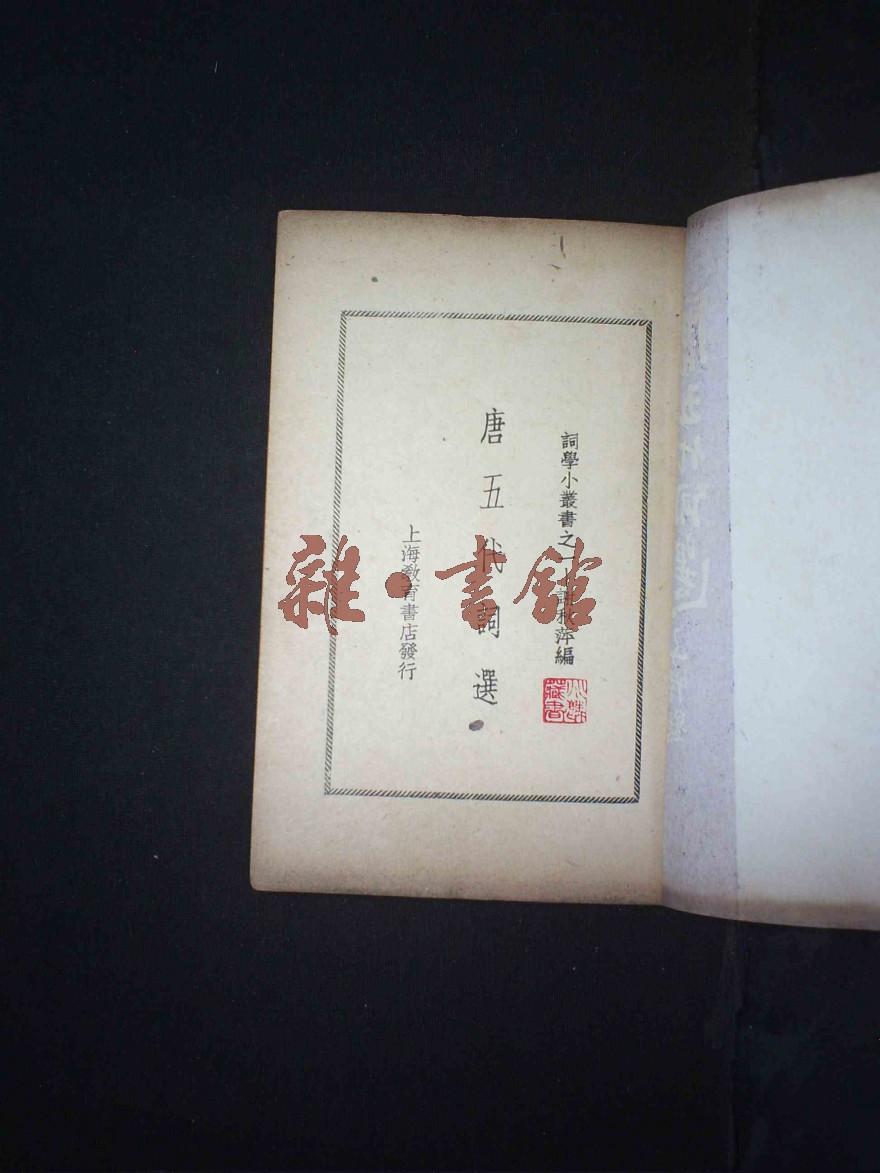 詞學小叢書之一 胡雲翼 羅芳洲 謝秋萍編
唐五代詞選
上海教育書店發行
雜·書館
藏書